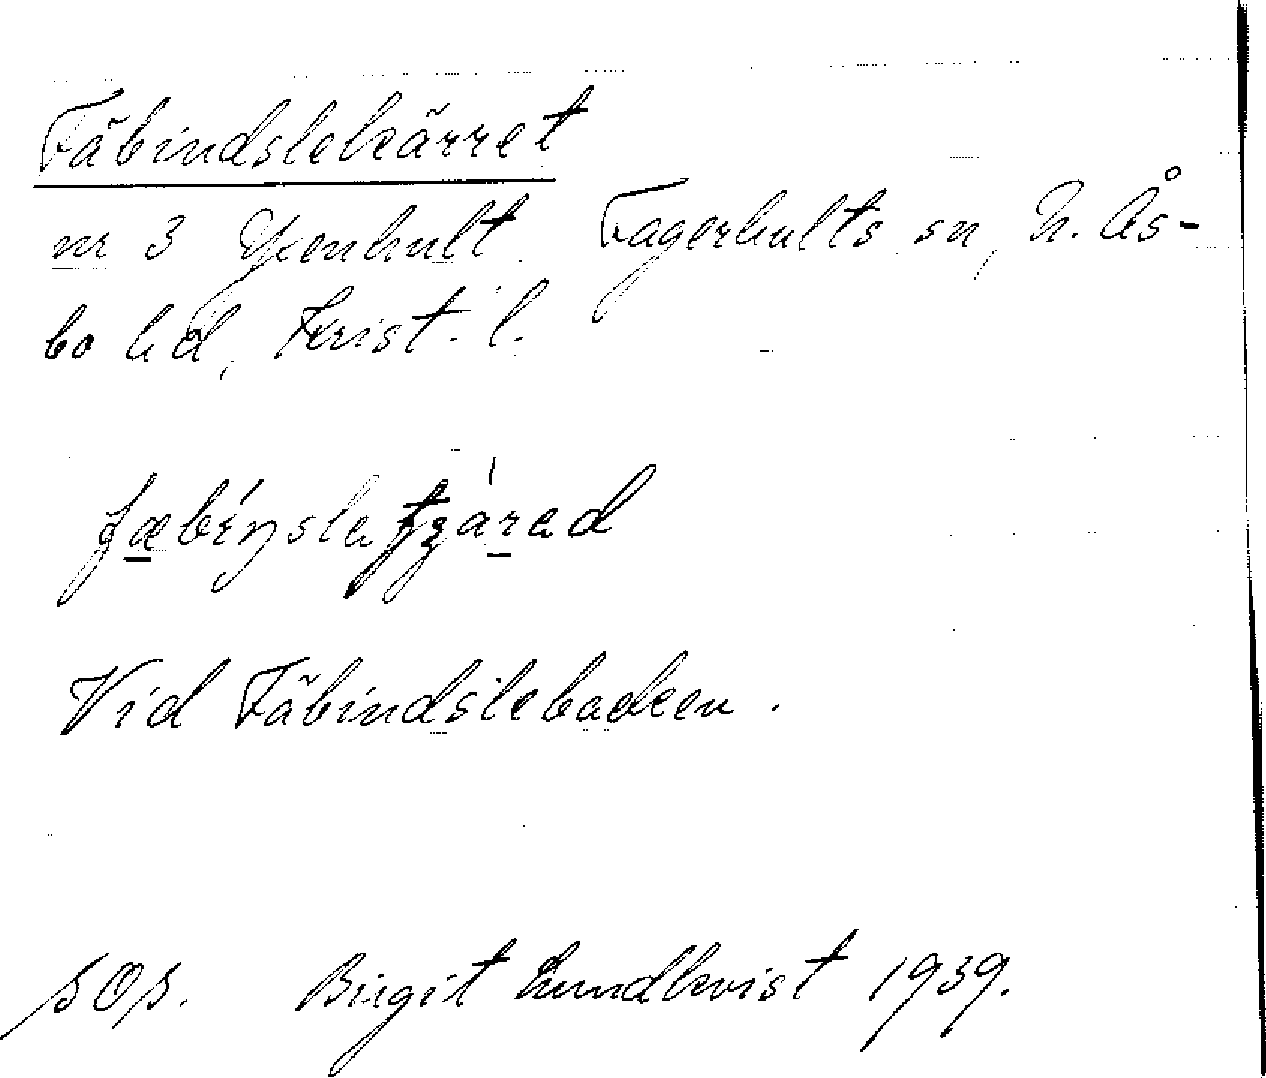 Fäbindslekärret
nr 3 Yxenhult. Fagerhults sn, N. Ås-
bo hd, Krist. l.
Vid Fäbindslebacken.
SOS. Birgit Lundkvist 1939.